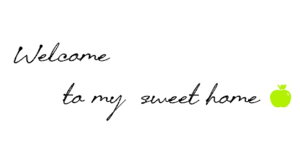 Welcome
to my sweet home